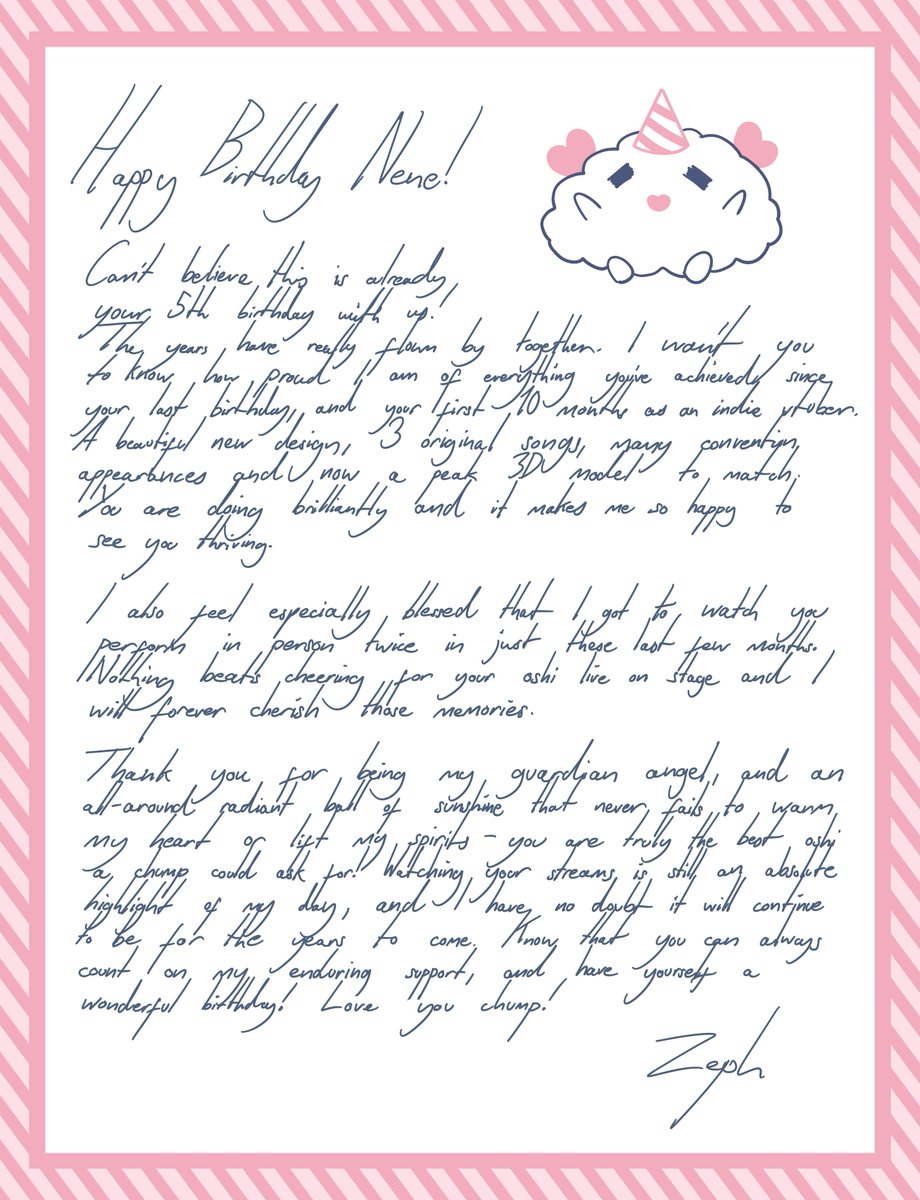 Happy Birthday Nene!
Can't believe this is already
your 5th birthday with us!
The years have really flown by together. I want you
to know how proud I am of everything you've achieved since
your last birthday, and your first 10 months as an indie vtuber.
A beautiful new design, 3 original songs, many convention
appearances and now a peak 3D model to match.
You are doing brilliantly and it makes me so happy to
see you thriving.
I also feel especially blessed that I got to watch you
perform in person twice in just these last few months.
Nothing beats cheering for your oshi live on stage and I
will forever cherish those memories.
Thank you for being my guardian angel, and an
all-around radiant ball of sunshine that never fails to warm
my heart or lift my spirits - you are truly the best oshi
a chump could ask for! Watching your streams is still an absolute
highlight of my day, and I have no doubt it will continue
to be for the years to come. Know that you can always
count on my enduring support, and have yourself a
wonderful birthday! Love you chump!
Zeph